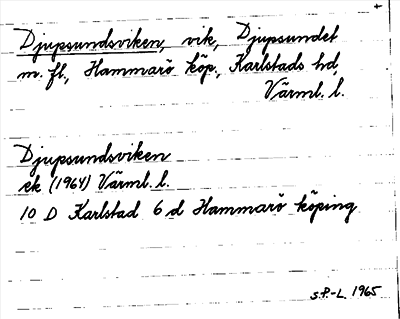 Djupsundsviken, vik, Djupsundet
m. fl., Hammarö köp., Karlstads hd,
Värml. l.
Djupsundsviken
ek (1964) Värml. l.
10 D Karlstad 6 d Hammarö köping
S.P.-L. 1965